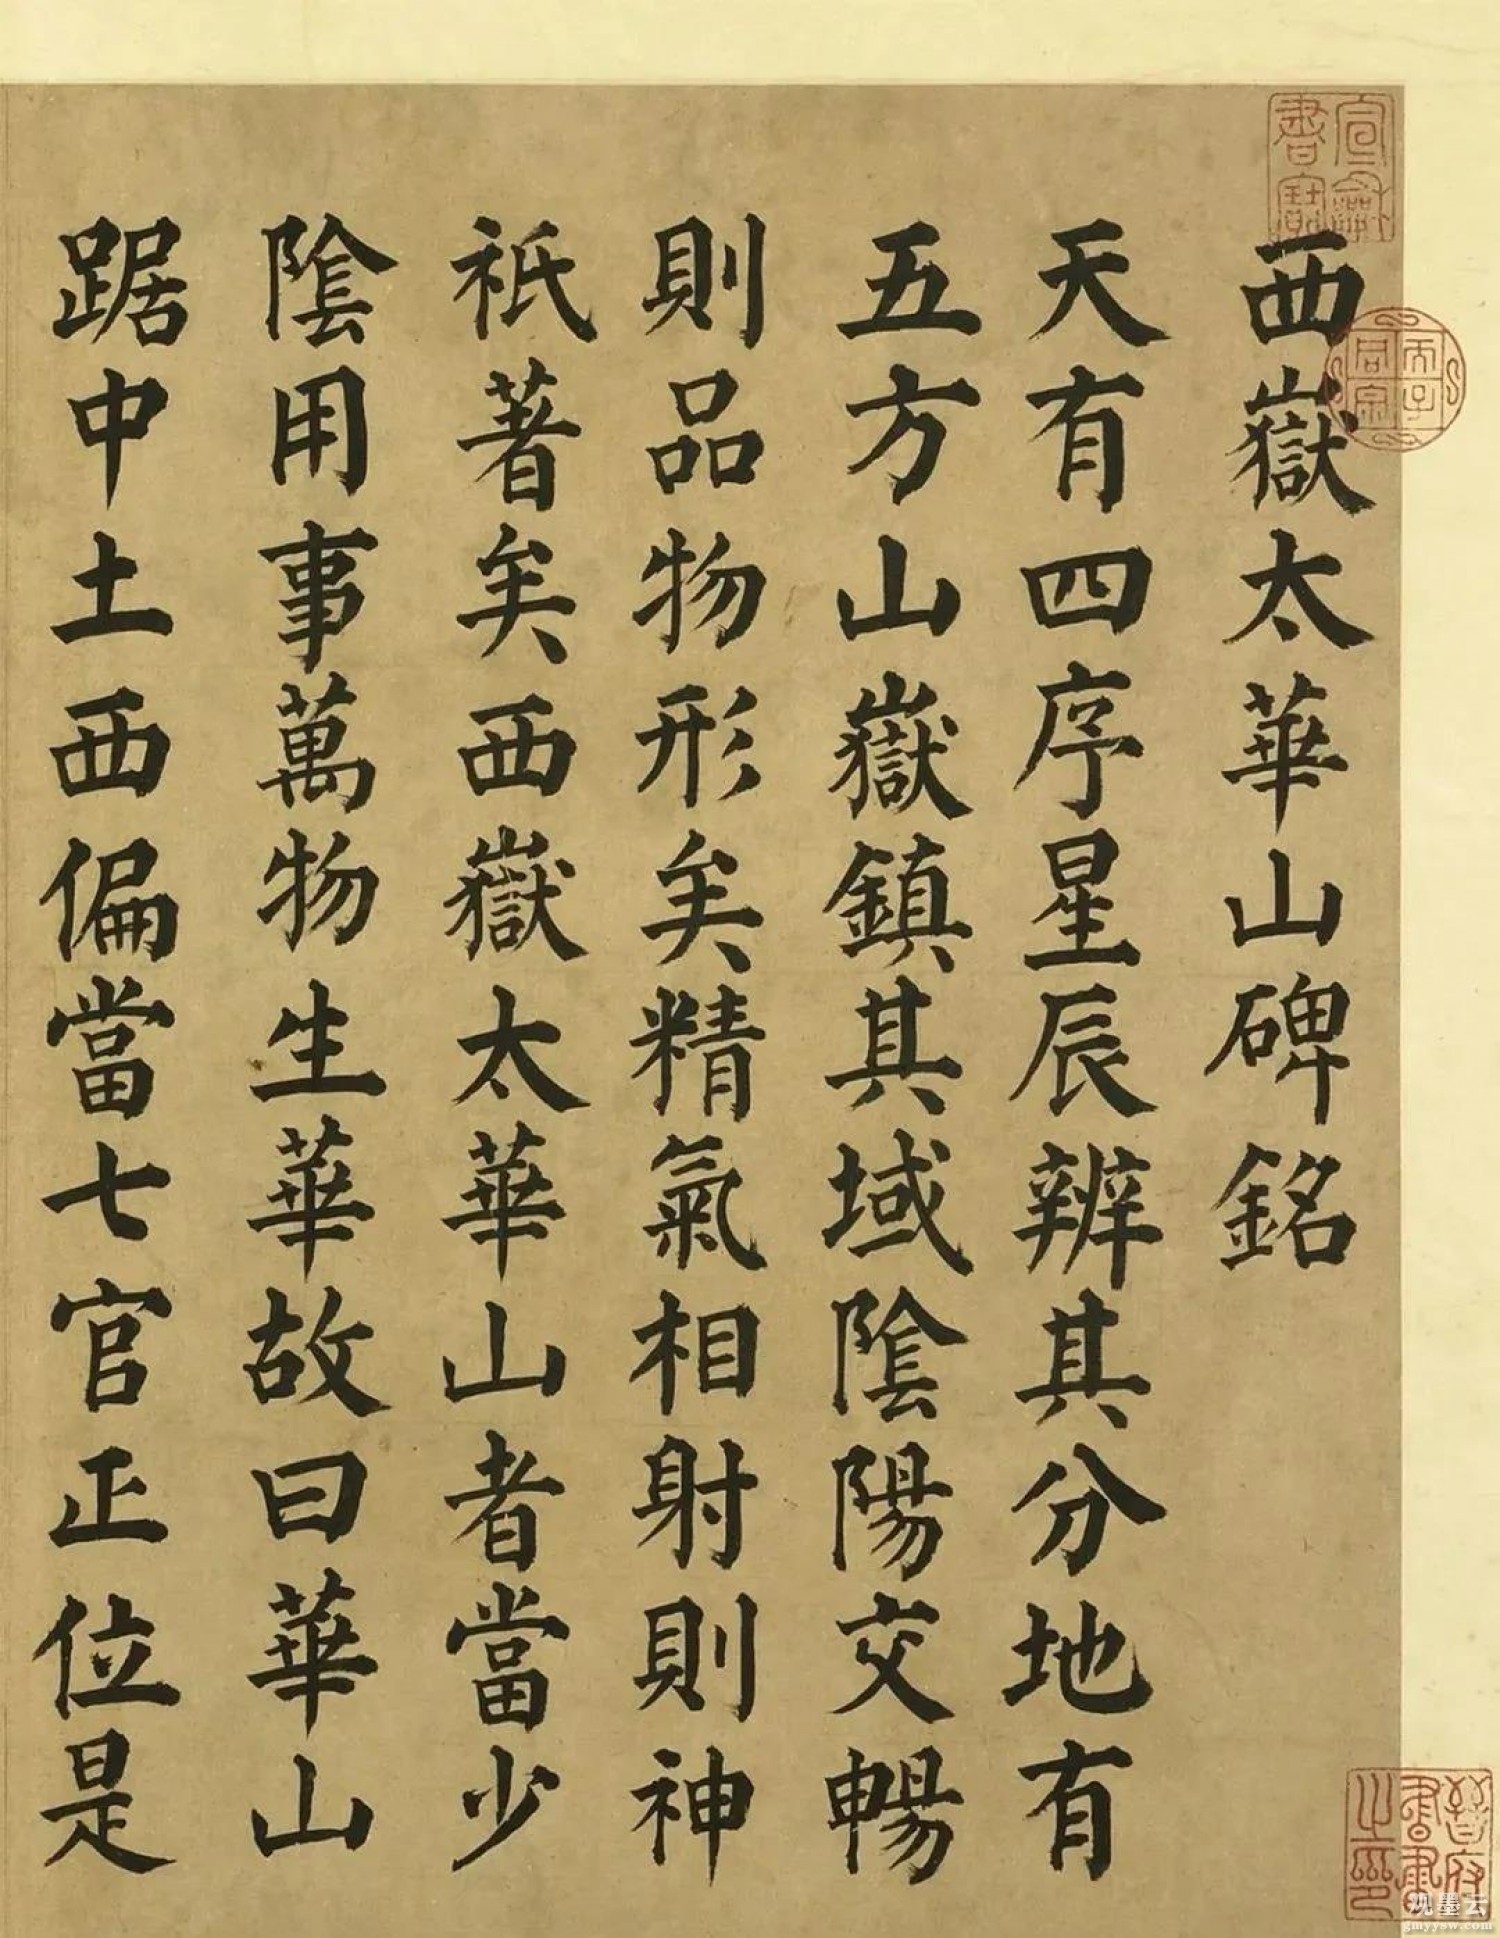 西嶽太華山碑銘
天有四序星辰辨其分地有
五方山嶽鎮其域陰陽交暢
則品物形矣精氣相射則神
祇著矣西嶽太華山者當少
陰用事萬物生華故曰華山
踞中土西偏當七官正位是
宣龢書寶
晉府書畫之印
观墨云
gmyysw.com